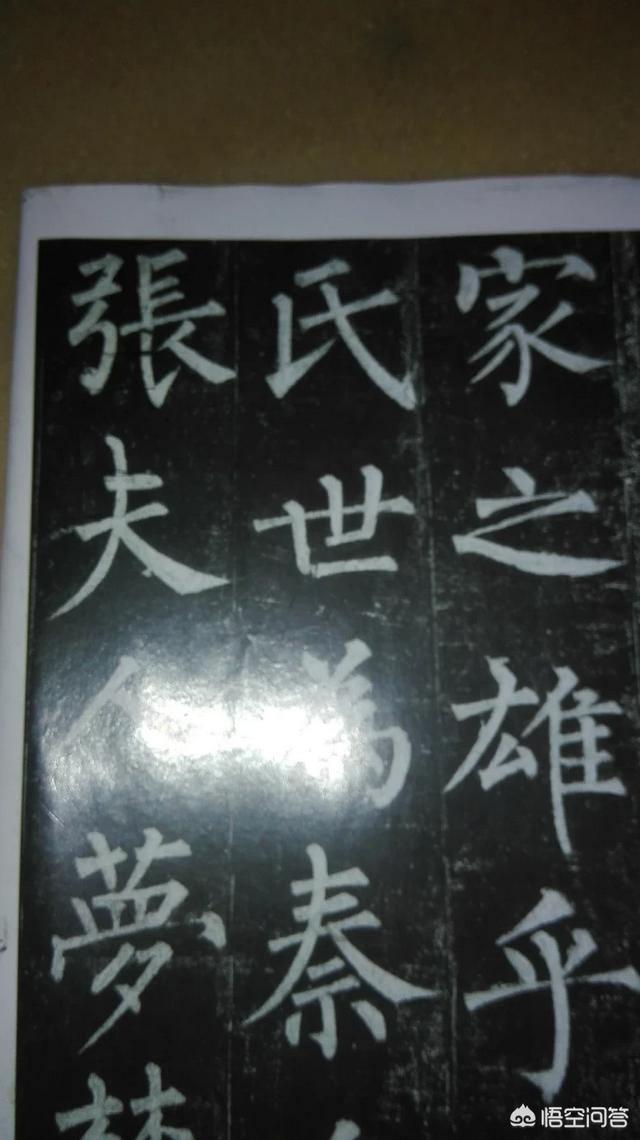 家之雄乎
氏世為秦
張夫人夢
悟空问答